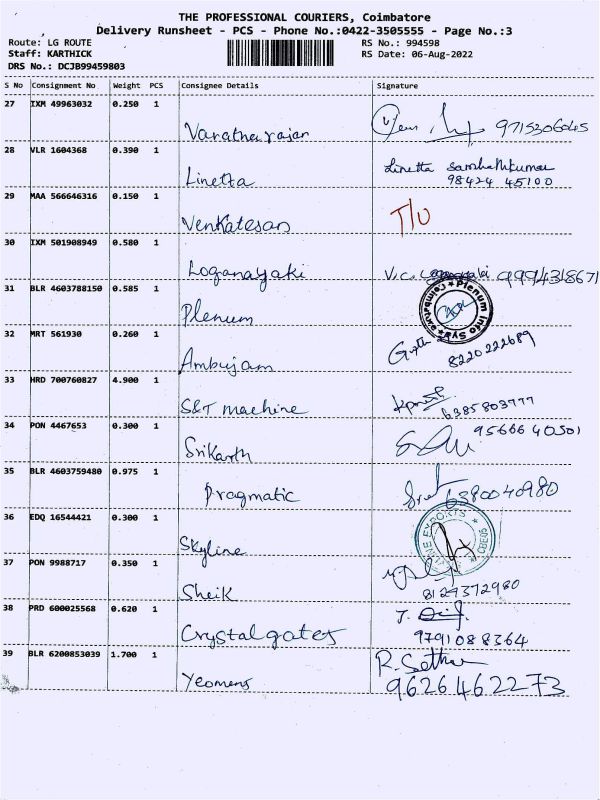 THE PROFESSIONAL COURIERS, Coimbatore
Delivery Runsheet - PCS - Phone No.:0422-3505555 - Page No.:3
Route: LG ROUTE RS No.: 994598
Staff: KARTHICK RS Date: 06-Aug-2022
DRS No.: DCJB99459803
S No Consignment No Weight PCS Consignee Details Signature
27 IXM 49963032 0.250 1
Varatharajan 9715306045
28 VLR 1604368 0.390 1 Linetta
Linetta 98424 45100
29 MAA 566646316 0.150 1 T/U
Venkatesan
30 IXM 501908949 0.580 1
Loganayaki V.C. 9994318671
31 BLR 4603788150 0.585 1 Plenum Info Sys
Plenum Coimbatore
32 MRT 561930 0.260 1
Ambujam 8220222689
33 HRD 700760827 4.900 1
S&T machine 6385803777
34 PON 4467653 0.300 1 95666 40501
Srikanth
35 BLR 4603759480 0.975 1
Pragmatic 6380040980
36 EDQ 16544421 0.300 1 EXPORTS
Skyline
37 PON 9988717 0.350 1
Sheik 8129372980
38 PRD 600025568 0.620 1 J.
Crystal gates 9791088364
39 BLR 6200853039 1.700 1 R. Sethu
Yeomens 9626462273